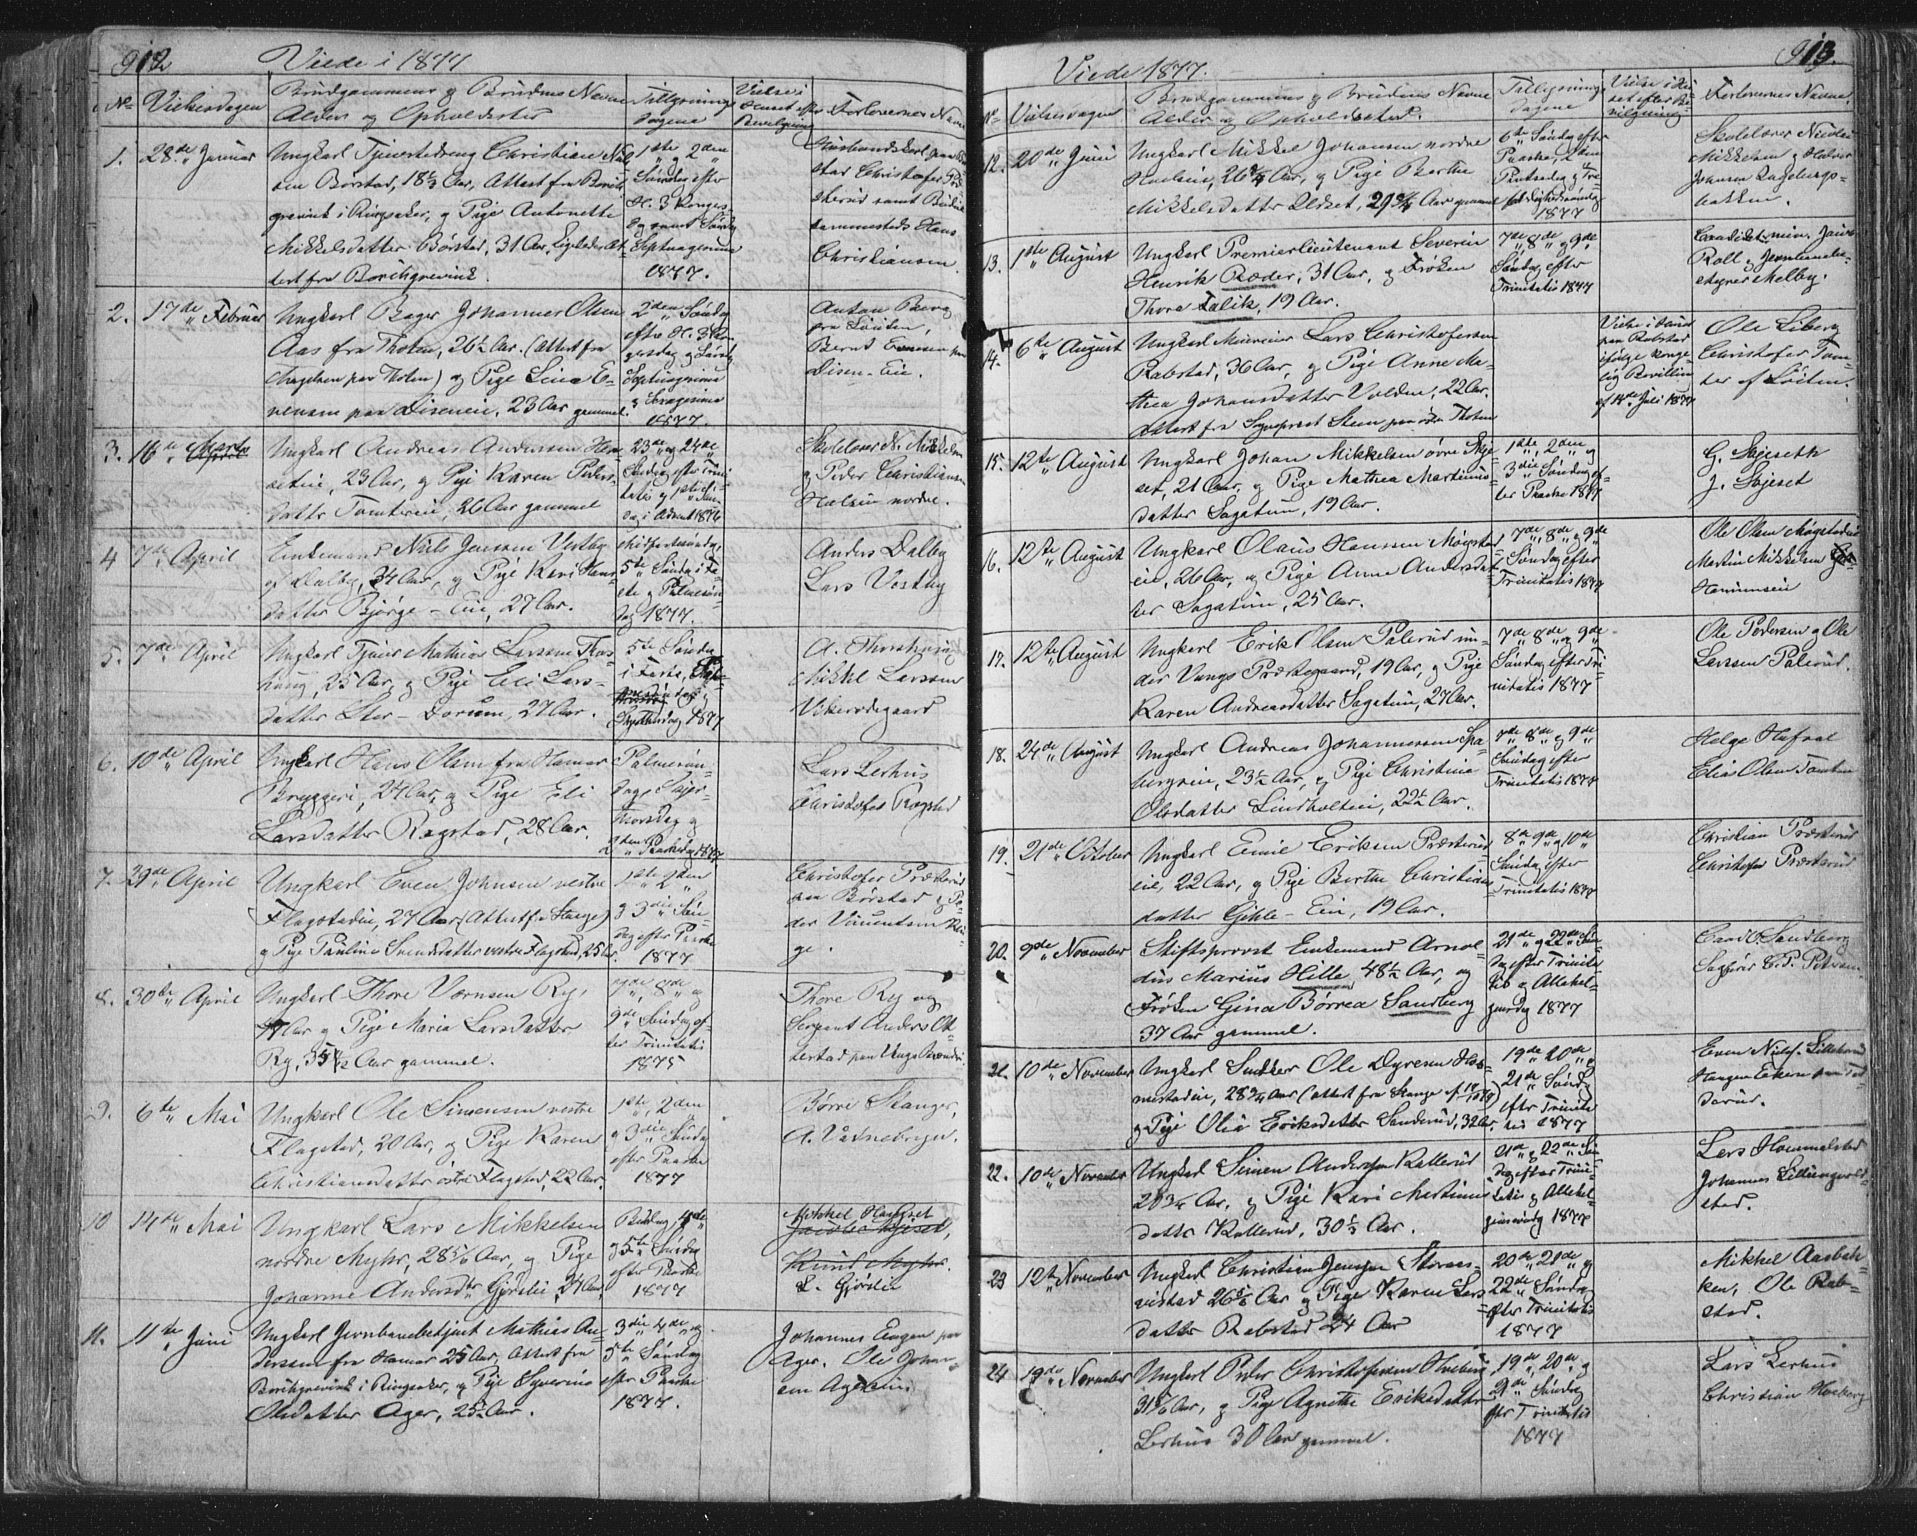 912
Viede i 1877
No
Vielsesdagen
Brudgommens og Brudens Navne
Alder og Opholdssted
Tillysnings
dagene
Vielse i
Huset efter
Bevilgning
Forlovernes Navne
1. 28de Januar
Ungkarl Tjenestedreng Christian Niel
sen Børstad, 18 1/3 Aar, Attest fra Borch
grevink i Ringsaker, og Pige Antonette
Mikkelsdatter Børstad, 31 Aar, Ligeledes At-
test fra Borchgrevink.
1ste og 2den
Søndag efter
H. 3 Konger
og samt Sønd
Septuagesima
1877.
Husbandskarl paa Bør
stad Christofer
samt
sammesteds Hans
Christiansen.
2. 17de Februar
Ungkarl Bager Johannes Olsen
Aas fra Thoten, 26 1/2 Aar. (Attest fra
paa Thoten) og Pige Lina E-
vensen paa Diseneie, 23 Aar gammel.
2den Søndag
efter H. 3 Kon
gersdag og Sønd
Septuagesima
og Sexagesima
1877.
Anton Berg
fra Løiten,
Bernt Evensen paa
Disen-Eie.
3. 16de Marts
Ungkarl Andreas Andersen
23 Aar, og Pige Karen Peders-
datter Tomtereie, 26 Aar gammel
23de og 24de
Søndag efter Trini
tatis og 1ste Søn-
dag i Advent 1876
Skolelærer N. Mikkelsen
og Peder Christiansen
Hulsin nordre.
4 7de April
Enkemand Niels Jensen Vestby
og Dalby, 34 Aar, og Pige Kari Hans-
datter Bjørge-Eie, 27 Aar.
Midfastesøndag,
5te Søndag i Fa-
ste og Palmesøn-
dag 1877.
Anders Dalby
Lars Vestby
5. 7de April
Ungkarl Tjener Mathias Larssen Thors-
haug, 25 Aar, og Pige Eli Lars-
datter Stor-Dorum, 27 Aar.
5te Søndag
i Faste, Palme-
søndag og
Skjærthorsdag 1877
A. Thorshaug
Mikkel Larssen
Vikersdegaard
6. 10de April
Ungkarl Hans Olsen fra Hamar
Bryggeri, 24 Aar, og Pige Eli
Larsdatter Rogstad, 28 Aar.
Palmesøn-
dag, Skjær-
thorsdag og
2den Paaskedag 1877
Lars Lerhus
Christofer Rogstad
7. 29de April
Ungkarl Even Johnsen vestre
Flagstadeie, 27 Aar (Attest fra Stange)
og Pige Pauline Svendsdatter vestre Flagstad, 25 Aar.
1ste, 2den
og 3die Søn-
dag efter Paaske
1877
Christofer Præsterud
paa Børstad og Pe-
der Vincentsen
8. 30te April
Ungkarl Thore Værnsen Ry,
Aar og Pige Maria Larsdatter
Ry, 35 1/2 Aar gammel.
7de, 8de og
9de Søndag ef-
ter Trinitatis
1875
Thore Ry og
Sergeant Anders Ot
terstad paa Vangs
9. 6te Mai
Ungkarl Ole Simensen vestre
Flagstad, 20 Aar, og Pige Karen
Christiansdatter østre Flagstad, 22 Aar.
1ste, 2den
og 3die Søndag
efter Paaske
1877
Børre Stanger,
A.
10 14de Mai
Ungkarl Lars Mikkelsen
nordre Myhr, 28 5/6 Aar, og Pige
Johanne Andersdtr Gjørslie, 24 Aar
Bededag, 4de
og 5te Søndag
efter Paaske
1877
Mikkel
Knud Myhr.
L. Gjørslie
11. 11te Juni
Ungkarl Jernbanebetjent Mathias An-
dersen fra Hamar 25 Aar, Attest fra
Borchgrevink i Ringsaker, og Pige Syverine
Olsdatter Ager, 25 1/2 Aar.
3die, 4de og
5te Søndag
efter Paaske
1877.
Johannes Engen paa
Ager. Ole Johan-
sen Ager
913.
Viede 1877.
No
Vielsesdagen
Brudgommens og Brudens Navne
Alder og Opholdssted.
Tillysnings
dagene
Vielse i Hu
set efter Be
vilgning
Forlovernes Navne.
12. 20de Juni
Ungkarl Mikkel Johansen nordre
26 3/4 Aar, og Pige Berthe
Mikkelsdatter Udset, 29 3/4 Aar gammel
6te Søndag efter
Paaske, 2den
Pintsedag og Tre-
foldighedssøndag
1877
Skolelærer Nicolai
Mikkelsen og
Johansen Kageberg-
bakken.
13. 1ste August
Ungkarl Premierlieutenant Severin
Henrik Ræder, 31 Aar, og Frøken
Thora Falik, 19 Aar.
7de, 8de og 9de
Søndag efter
Trinitatis 1877
Roll og Jernbanebe-
styrer Melby.
14. 6te August
Ungkarl Murmester Lars Christofersen
Rabstad, 36 Aar, og Pige Anne Ma-
thea Johansdatter Volden, 22 Aar.
Attest fra Sognepræst Steen paa østre Thoten
Vielse i Huset
paa Rabstad
ifølge konge
lig Bevilling
af 14de Juli 1877
Ole Liberg
Christofer Tom
ter af Løiten.
15. 12te August
Ungkarl Johan Mikkelsen øvre Skje-
set, 21 Aar, og Pige Mathea Martinus-
datter Sagatun, 19 Aar.
1ste, 2den og
3die Søndag ef-
ter Paaske 1877
G. Skjeseth
J. Skjeset
16. 12te August
Ungkarl Olaus Hanssen Møystad
eie, 26 Aar, og Pige Anne Andersdat
ter Sagatun, 25 Aar.
7de, 8de og 9de
Søndag efter
Trinitatis 1877
Ole Olsen Møystadeie
Martin Mikkelsen
17. 12te August
Ungkarl Erik Olsen Palerud un-
der Vangs Præstegaard, 19 Aar, og Pige
Karen Andreasdatter Sagatun, 27 Aar.
7de, 8de og 9de
Søndag efter Tri-
nitatis 1877
Ole Pedersen og Ole
Larssen Palerud.
18. 24de August
Ungkarl Andreas Johannessen Spa-
bergseie, 23 1/2 Aar, og Pige Christine
Olsdatter Lindholteie, 22 1/2 Aar.
7de, 8de og 9de
Søndag efter
Trinitatis 1877
Helge Hafsal
Elias Olsen Tomten
19. 21de October
Ungkarl Emil Eriksen Præsterud
eie, 22 Aar, og Pige Berthe Christians
datter Gihle-Eie, 19 Aar.
8de, 9de og 10de
Søndag efter
Trinitatis 1877
Christian Præsterud
Christofer Præsterud
20. 9de November
Stiftsprovst Enkemand Arnol
dus Marius Hille, 48 1/2 Aar, og
Frøken Gina Børrea Sandberg
37 Aar gammel.
21de og 22de Søn-
dag efter Trinita-
tis og Allehel-
gensdag 1877
Sandberg
Sagfører C. P. Petersen
21. 10de November
Ungkarl Snekker Ole Dyresen
28 3/4 Aar (Attest fra Stange
og Pige Olia Eriksdatter Sanderud, 32 Aar
19de, 20de og
21de Sønd.
efter Trinita
tis 1877
Even Nilss. Lillehov
Haagen Eriksen
22. 10de November
Ungkarl Simen Andersen Kallerud
29 3/4 Aar, og Pige Kari Martinus
datter Kallerud, 30 1/2 Aar.
21de og 22de Søn
dag efter Trini-
tatis og Allehel-
gensøndag 1877
Lars Hommelstad
Johannes Lillungvold-
stad.
23 12te November
Ungkarl Christian Jensen Storaas-
vestad 26 5/6 Aar og Pige Karen Lars
datter Rabstad 24 Aar
20de, 21de og
22de Søndag
efter Trinitatis
1877
Mikkel Aasbak
ken, Ole Rab-
stad.
24 19de November
Ungkarl Peder Christofersen Hveberg
31 Aar, og Pige Agnethe Eriksdatter
Lerhus 30 Aar gammel.
19de, 20de og
21de Søndag
efter Trinitatis
1877
Lars Lerhus
Christian Hveberg